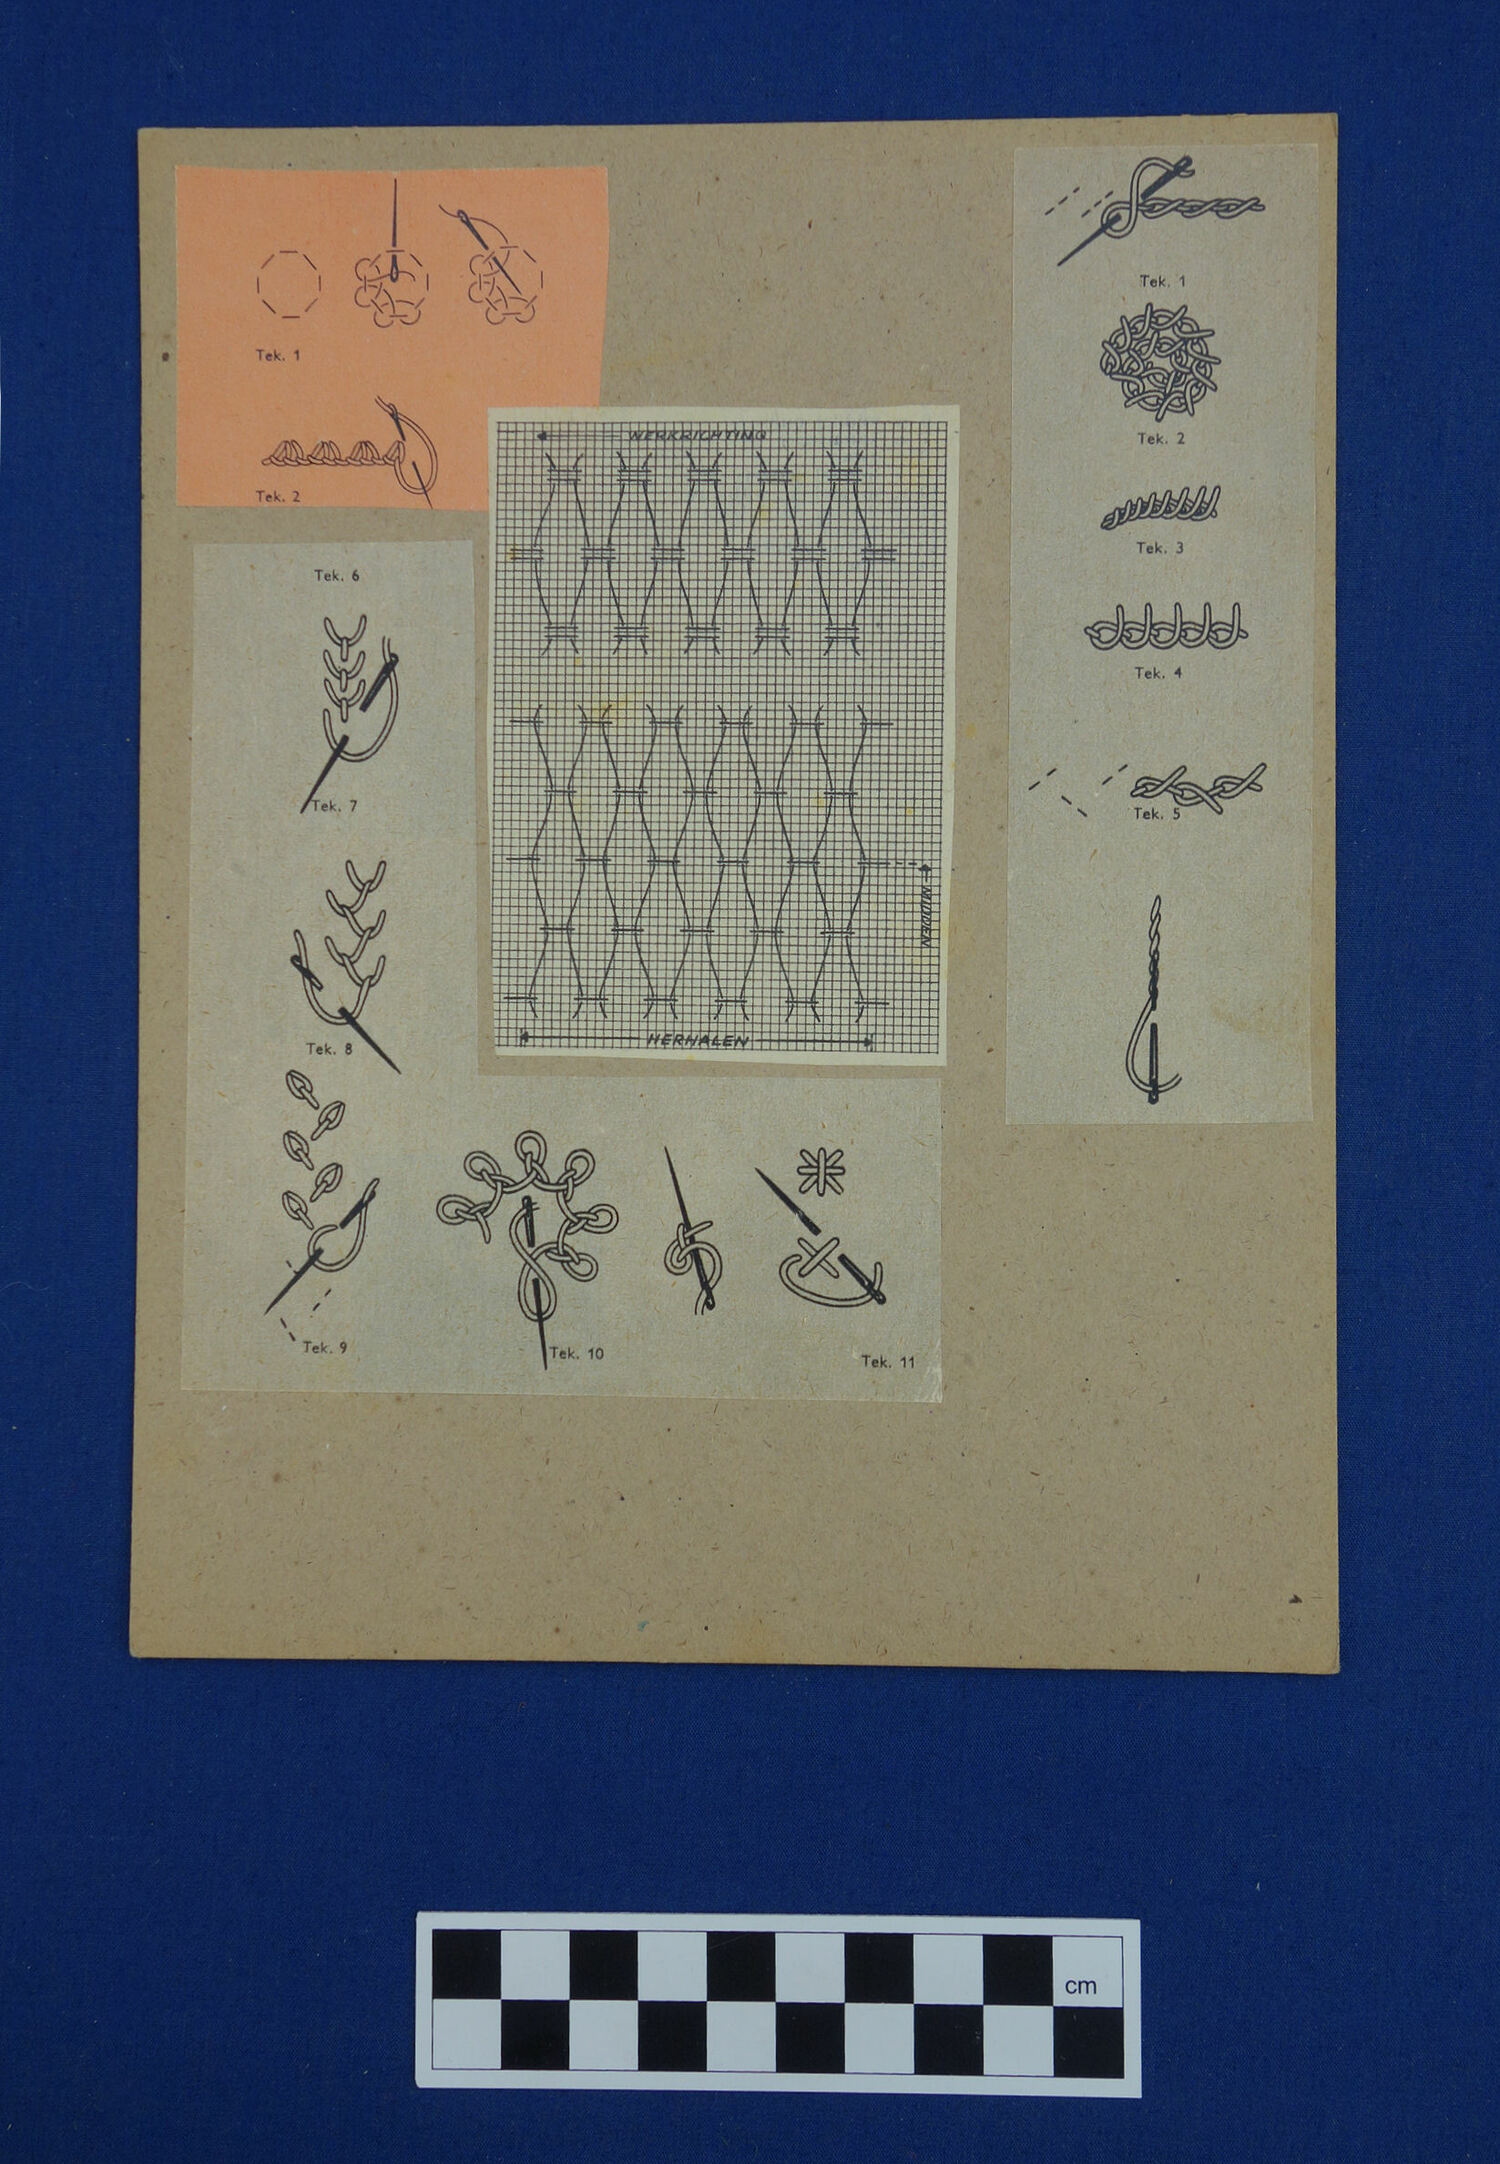 Tek. 1
Tek. 2
WERKRICHTING
MIDDEN
HERHALEN
Tek. 1
Tek. 2
Tek. 3
Tek. 4
Tek. 5
Tek. 6
Tek. 7
Tek. 8
Tek. 9
Tek. 10
Tek. 11
cm